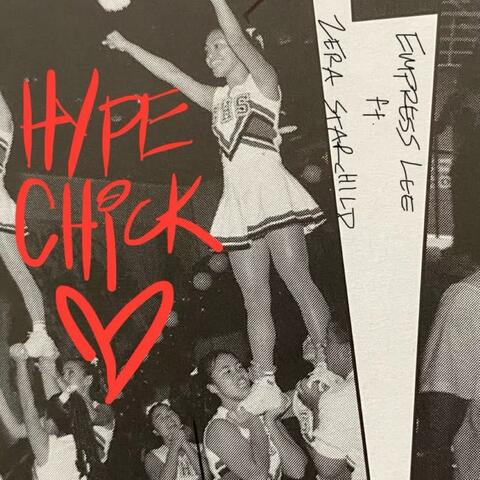 HYPE
CHiCK
EMPRESS LEE
ft.
ZERA STARCHILD
HS